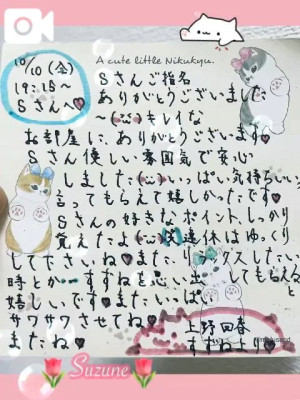 A cute little Nikukyu.
10/10(金)
19:15~
Sさんへ♥
Sさんご指名
ありがとうございました
キレイな
お部屋に、ありがとうございます♥
Sさん優しい雰囲気で安心
しました いっぱい気持ちいい
言ってもらえて嬉しかったです♥
Sさんの好きなポイント、しっかり
覚えたよ 連休はゆっくり
してくださいね♥また、リラックスしたい
時とか… すずねを思い出してもらえると
嬉しいです♥またいっぱい
サワサワさせてね♥
またね♥
上野回春
すずねより♥
Suzune